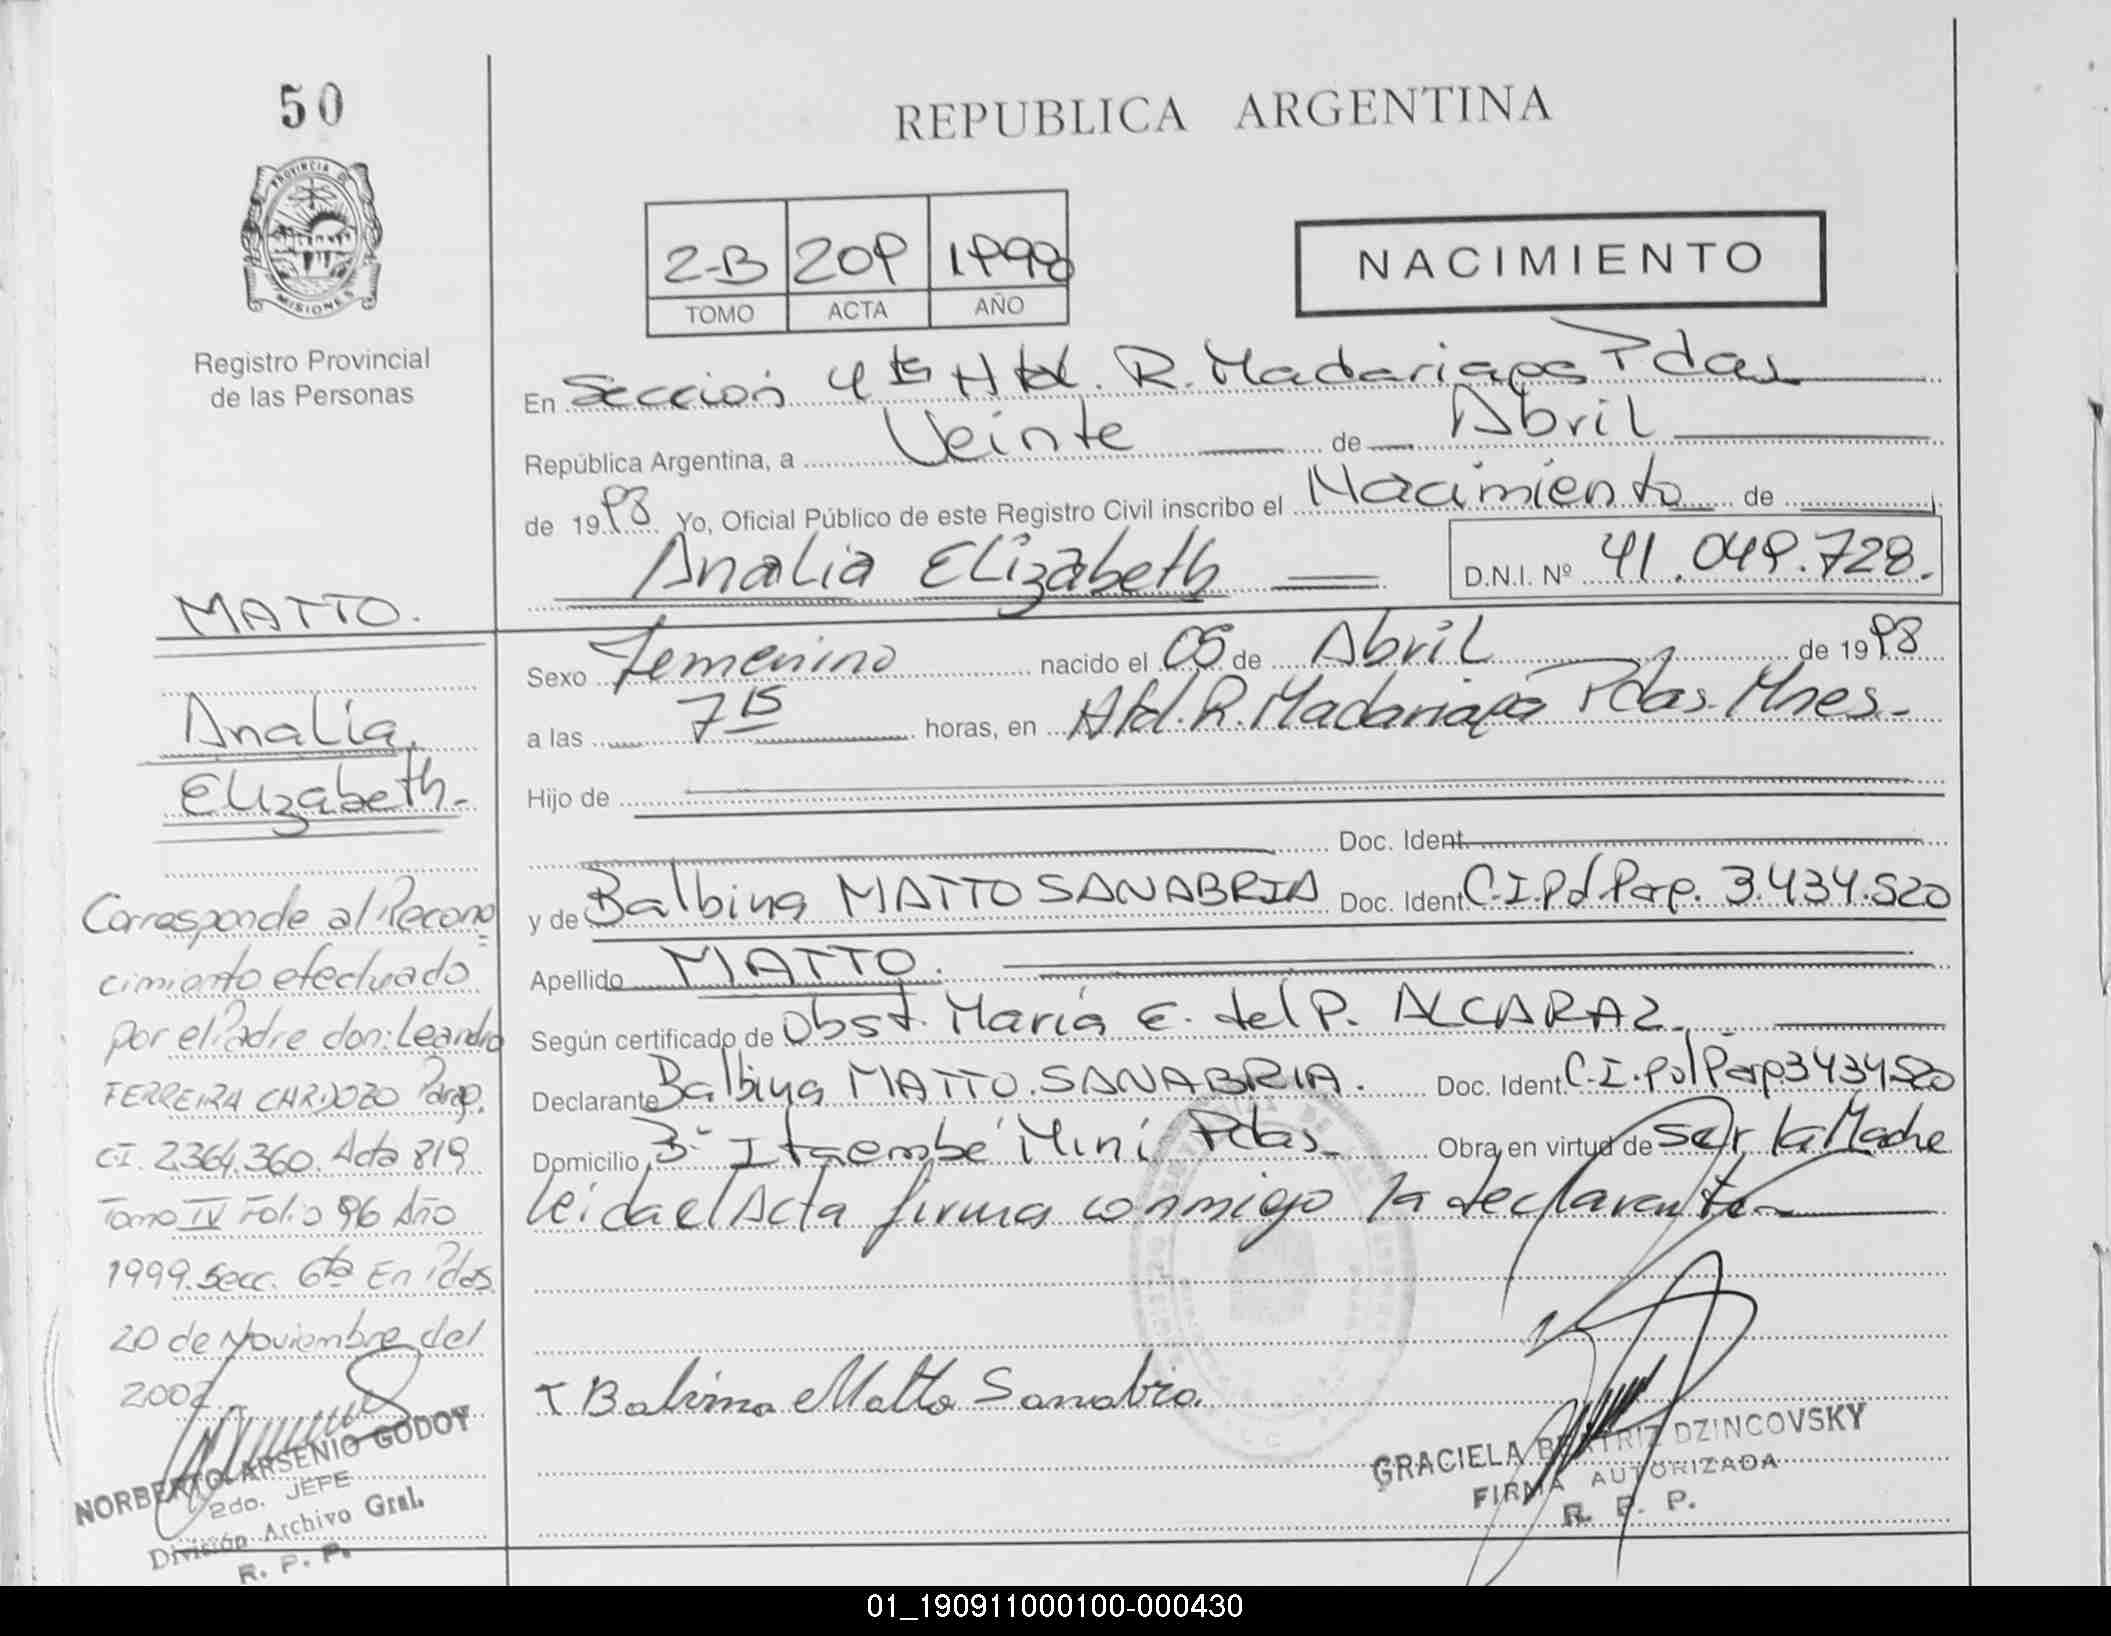 50
PROVINCIA DE
MISIONES
Registro Provincial
de las Personas
MATTO.
Analia
Elizabeth.-
Corresponde al Recono
cimiento efectuado
por el Padre don: Leandro
FERREIRA CARDOZO Parag.
CI. 2.364.360. Acta 819
Tomo IV Folio 96 Año
1999. Secc. 6ta En Pdas.
20 de Noviembre del
2002.-
NORBERTO ARSENIO GODOY
2do. JEFE
División Archivo Gral.
R. P. P.
REPUBLICA ARGENTINA
2-B 209 1998
TOMO ACTA AÑO
NACIMIENTO
En Sección 4ta Htal. R. Madariaga Pdas
República Argentina, a Veinte de Abril
de 1998 Yo, Oficial Público de este Registro Civil inscribo el Nacimiento de
Analia Elizabeth D.N.I. Nº 41.049.728.
Sexo Femenino nacido el 05 de Abril de 1998
a las 7 15 horas, en Htal. R. Madariaga Pdas. Mnes.-
Hijo de
Doc. Ident.
y de Balbina MATTO SANABRIA Doc. Ident. C.I.Pol Parg. 3.434.520
Apellido MATTO.
Según certificado de Obst. María E. del P. ALCARAZ.
Declarante Balbina MATTO. SANABRIA. Doc. Ident. C.I.Pol Parg. 3434520
Domicilio Bº Itaembé Miní Pdas Obra en virtud de ser la Madre
leida el Acta firma conmigo la declarante
Balvina Matto Sanabria.
GRACIELA BEATRIZ DZINCOVSKY
FIRMA AUTORIZADA
R. P. P.
01_190911000100-000430